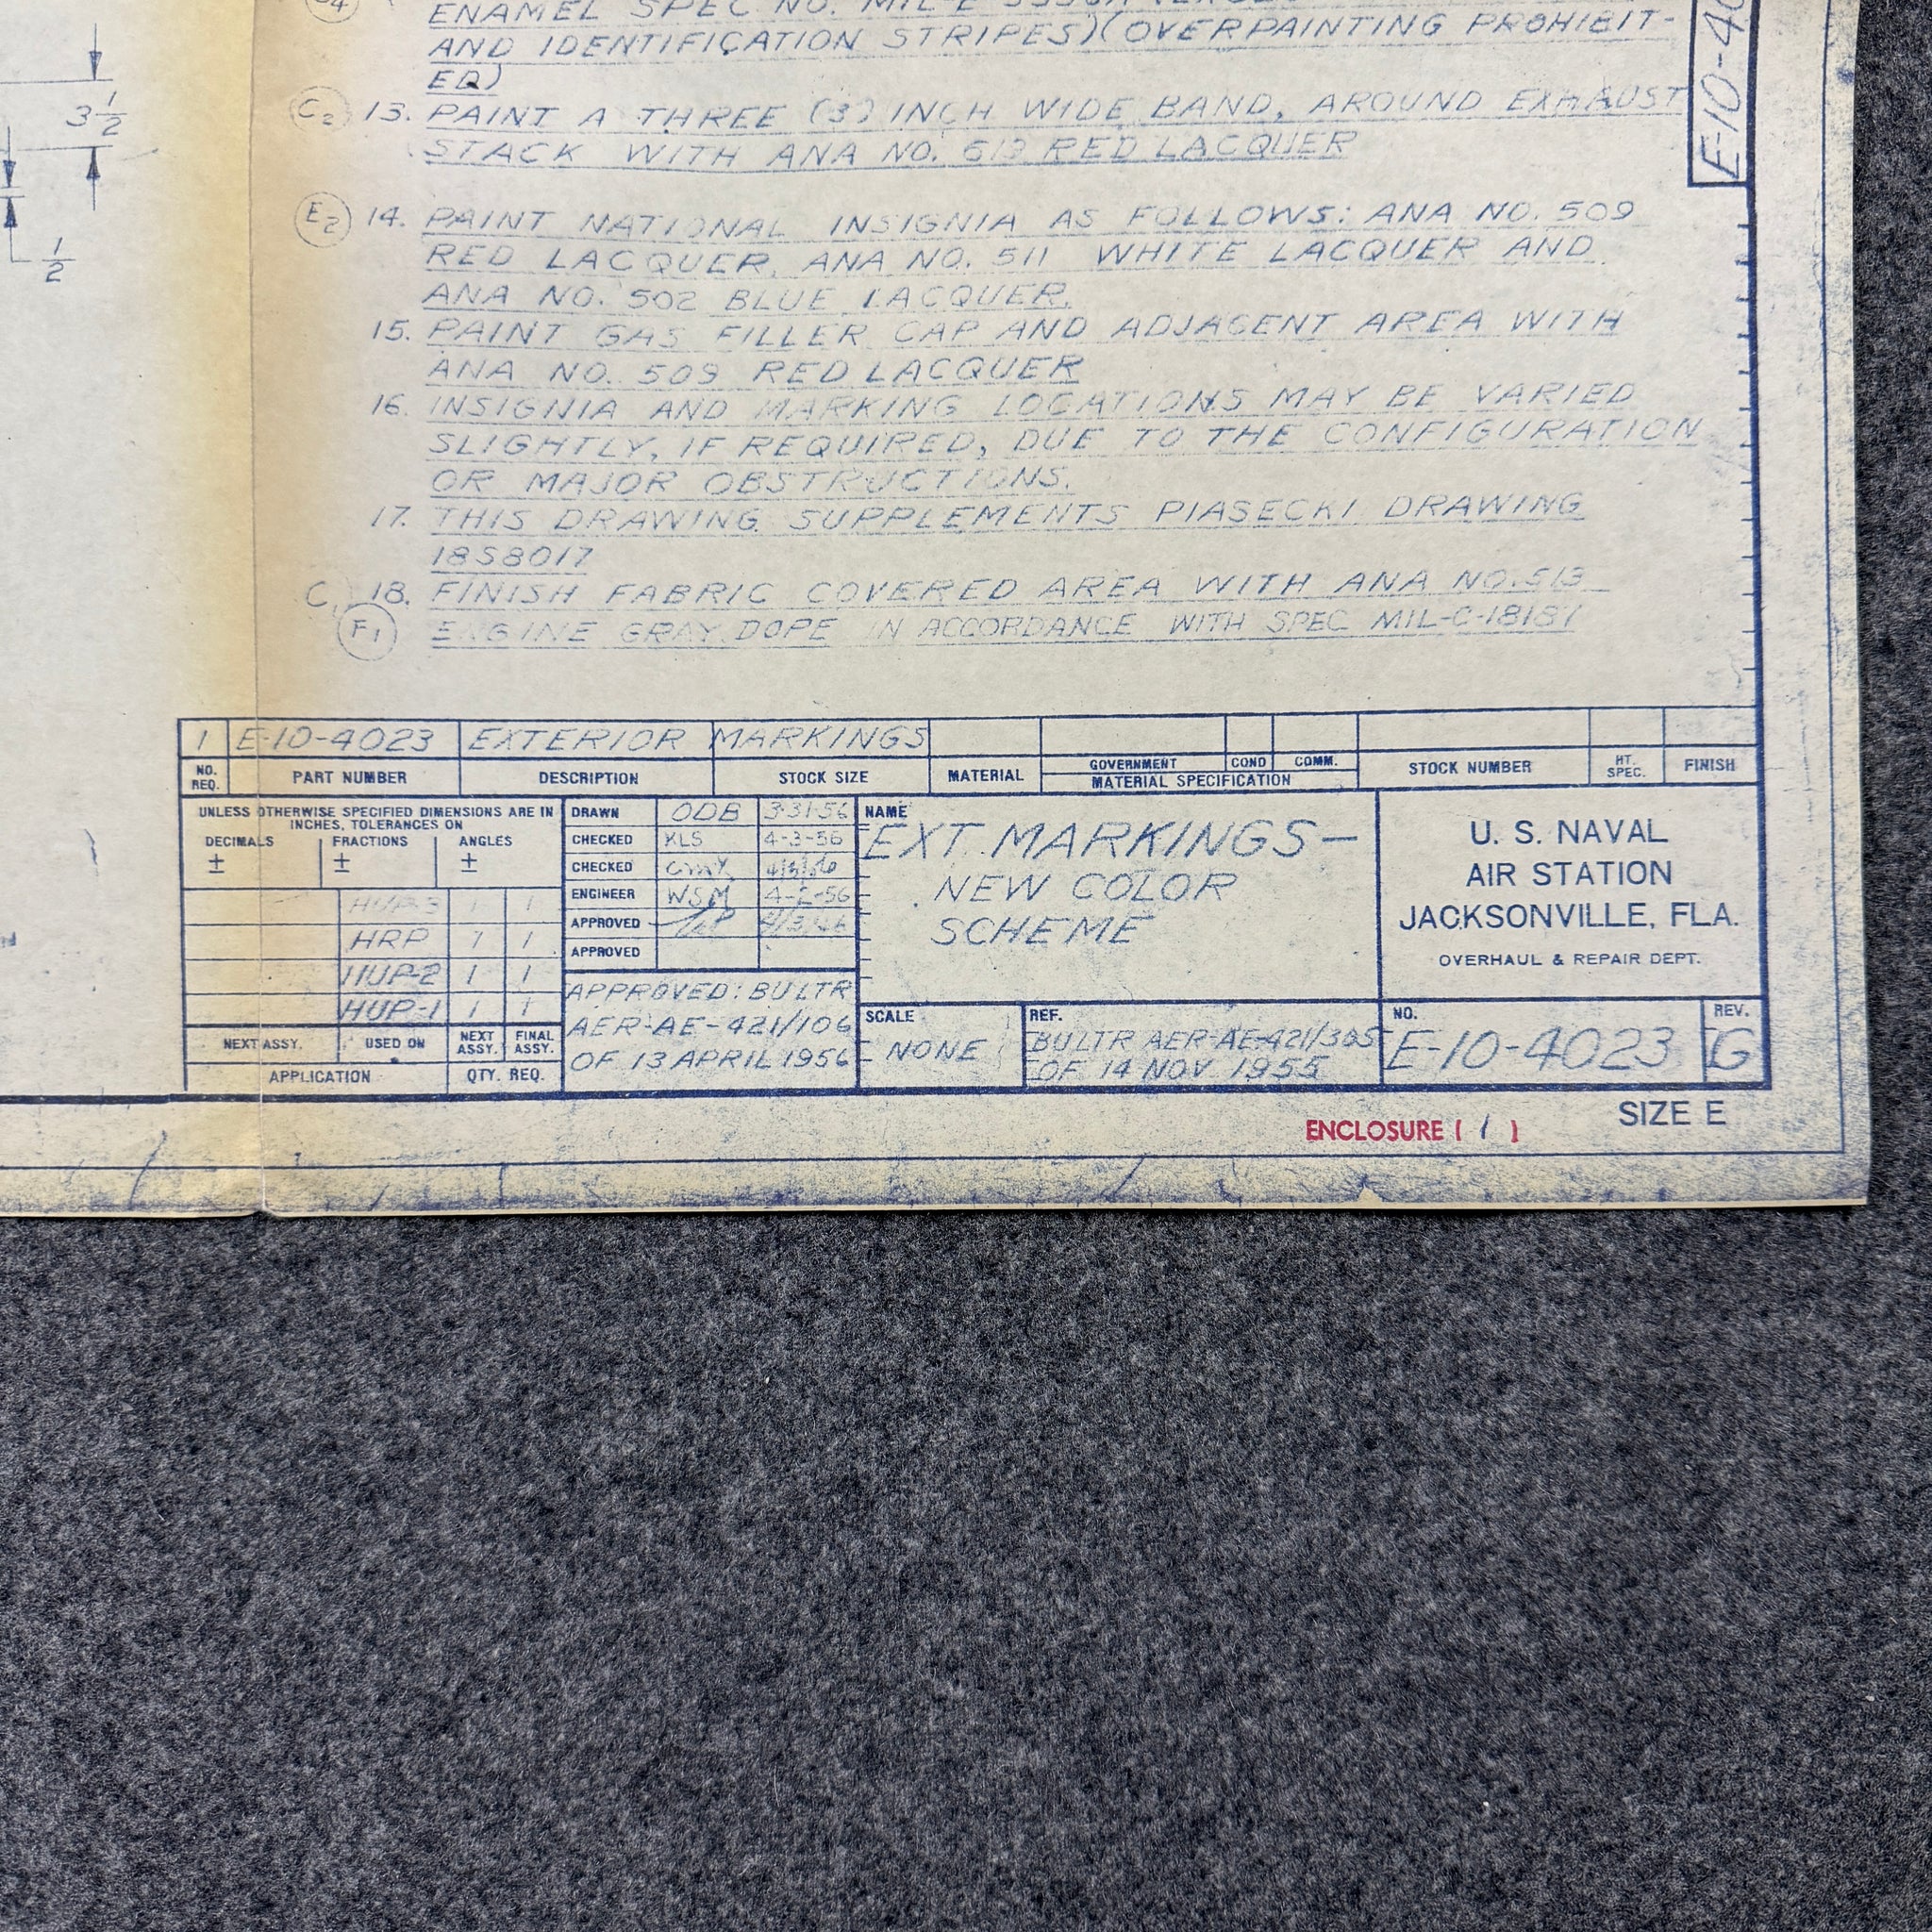 ENAMEL SPEC NO. MIL-E
AND IDENTIFICATION STRIPES)(OVERPAINTING PROHIBIT-
ED)
3 1/2
1/2
E-10-40
C2 13. PAINT A THREE (3) INCH WIDE BAND, AROUND EXHAUST
STACK WITH ANA NO. 619 RED LACQUER
E2 14. PAINT NATIONAL INSIGNIA AS FOLLOWS: ANA NO. 509
RED LACQUER, ANA NO. 511 WHITE LACQUER AND
ANA NO. 502 BLUE LACQUER.
15. PAINT GAS FILLER CAP AND ADJACENT AREA WITH
ANA NO. 509 RED LACQUER
16. INSIGNIA AND MARKING LOCATIONS MAY BE VARIED
SLIGHTLY, IF REQUIRED, DUE TO THE CONFIGURATION
OR MAJOR OBSTRUCTIONS.
17. THIS DRAWING SUPPLEMENTS PIASECKI DRAWING
18S8017
C1 18. FINISH FABRIC COVERED AREA WITH ANA NO. 513
F1 ENGINE GRAY DOPE IN ACCORDANCE WITH SPEC MIL-C-18187
1 E-10-4023 EXTERIOR MARKINGS
NO. REQ. PART NUMBER DESCRIPTION STOCK SIZE MATERIAL GOVERNMENT COND COMM. MATERIAL SPECIFICATION STOCK NUMBER HT. SPEC. FINISH
UNLESS OTHERWISE SPECIFIED DIMENSIONS ARE IN
INCHES, TOLERANCES ON
DECIMALS FRACTIONS ANGLES
± ± ±
HUP-3 1 1
HRP 1 1
HUP-2 1 1
HUP-1 1 1
NEXT ASSY. USED ON NEXT ASSY. FINAL ASSY.
APPLICATION QTY. REQ.
DRAWN ODB 3-31-56
CHECKED KLS 4-3-56
CHECKED
ENGINEER WSM 4-2-56
APPROVED
APPROVED
APPROVED: BULTR
AER-AE-421/106
OF 13 APRIL 1956
NAME
EXT. MARKINGS-
NEW COLOR
SCHEME
SCALE
NONE
REF.
BULTR AER-AE-421/305
OF 14 NOV 1955
U. S. NAVAL
AIR STATION
JACKSONVILLE, FLA.
OVERHAUL & REPAIR DEPT.
NO.
E-10-4023
REV.
G
ENCLOSURE ( 1 )
SIZE E